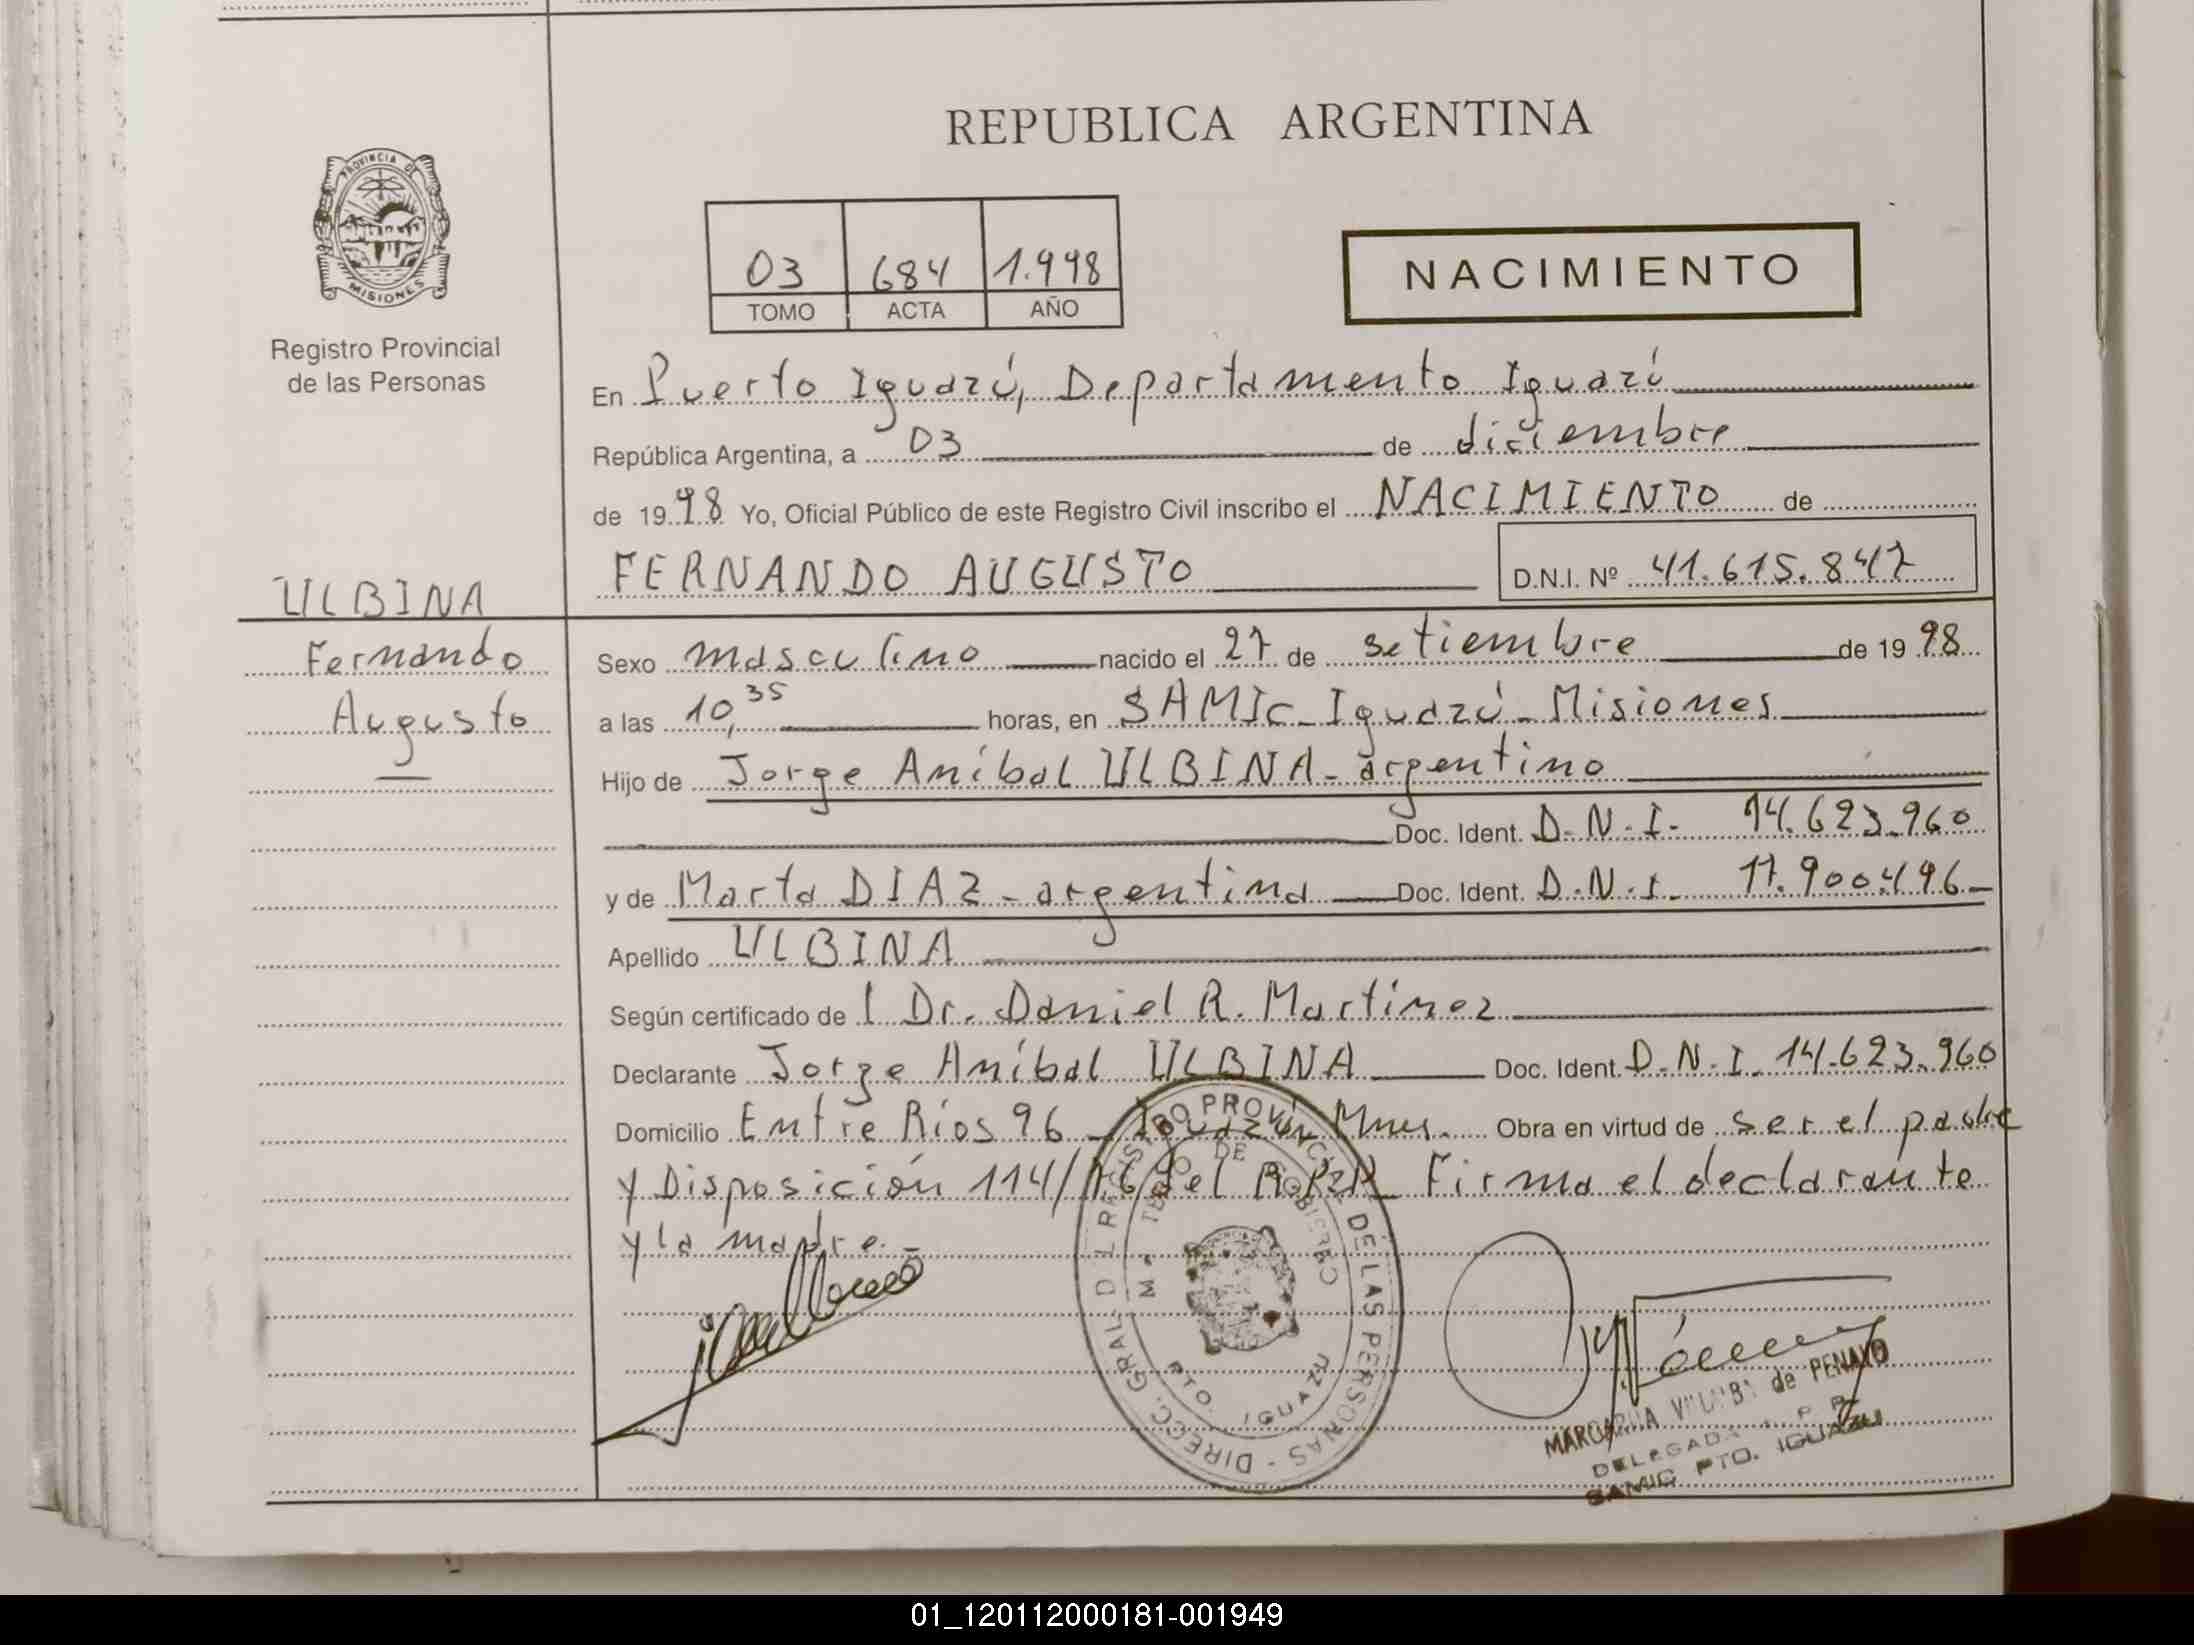 REPUBLICA ARGENTINA
PROVINCIA DE
MISIONES
Registro Provincial
de las Personas
03 684 1.998
TOMO ACTA AÑO
NACIMIENTO
En Puerto Iguazú, Departamento Iguazú
República Argentina, a 03 de diciembre
de 1998 Yo, Oficial Público de este Registro Civil inscribo el NACIMIENTO de
FERNANDO AUGUSTO D.N.I. Nº 41.615.847
ULBINA
Fernando
Augusto
Sexo masculino nacido el 27 de setiembre de 1998
a las 10,35 horas, en SAMIc - Iguazú - Misiones
Hijo de Jorge Aníbal ULBINA - argentino
Doc. Ident. D.N.I. 14.623.960
y de Marta DIAZ - argentina Doc. Ident. D.N.I. 17.900.496
Apellido ULBINA
Según certificado de l Dr. Daniel R. Martínez
Declarante Jorge Aníbal ULBINA Doc. Ident. D.N.I. 14.623.960
Domicilio Entre Ríos 96 - Iguazú Mnes. Obra en virtud de ser el padre
y Disposición 114/76 del R.P.P. Firma el declarante
y la madre.-
DIRECC. GRAL. DEL REGISTRO PROVINCIAL DE LAS PERSONAS
PTO. IGUAZU
MARGARITA VILLALBA de PENAYO
DELEGADA R. P. P.
SAMIC PTO. IGUAZU
01_120112000181-001949